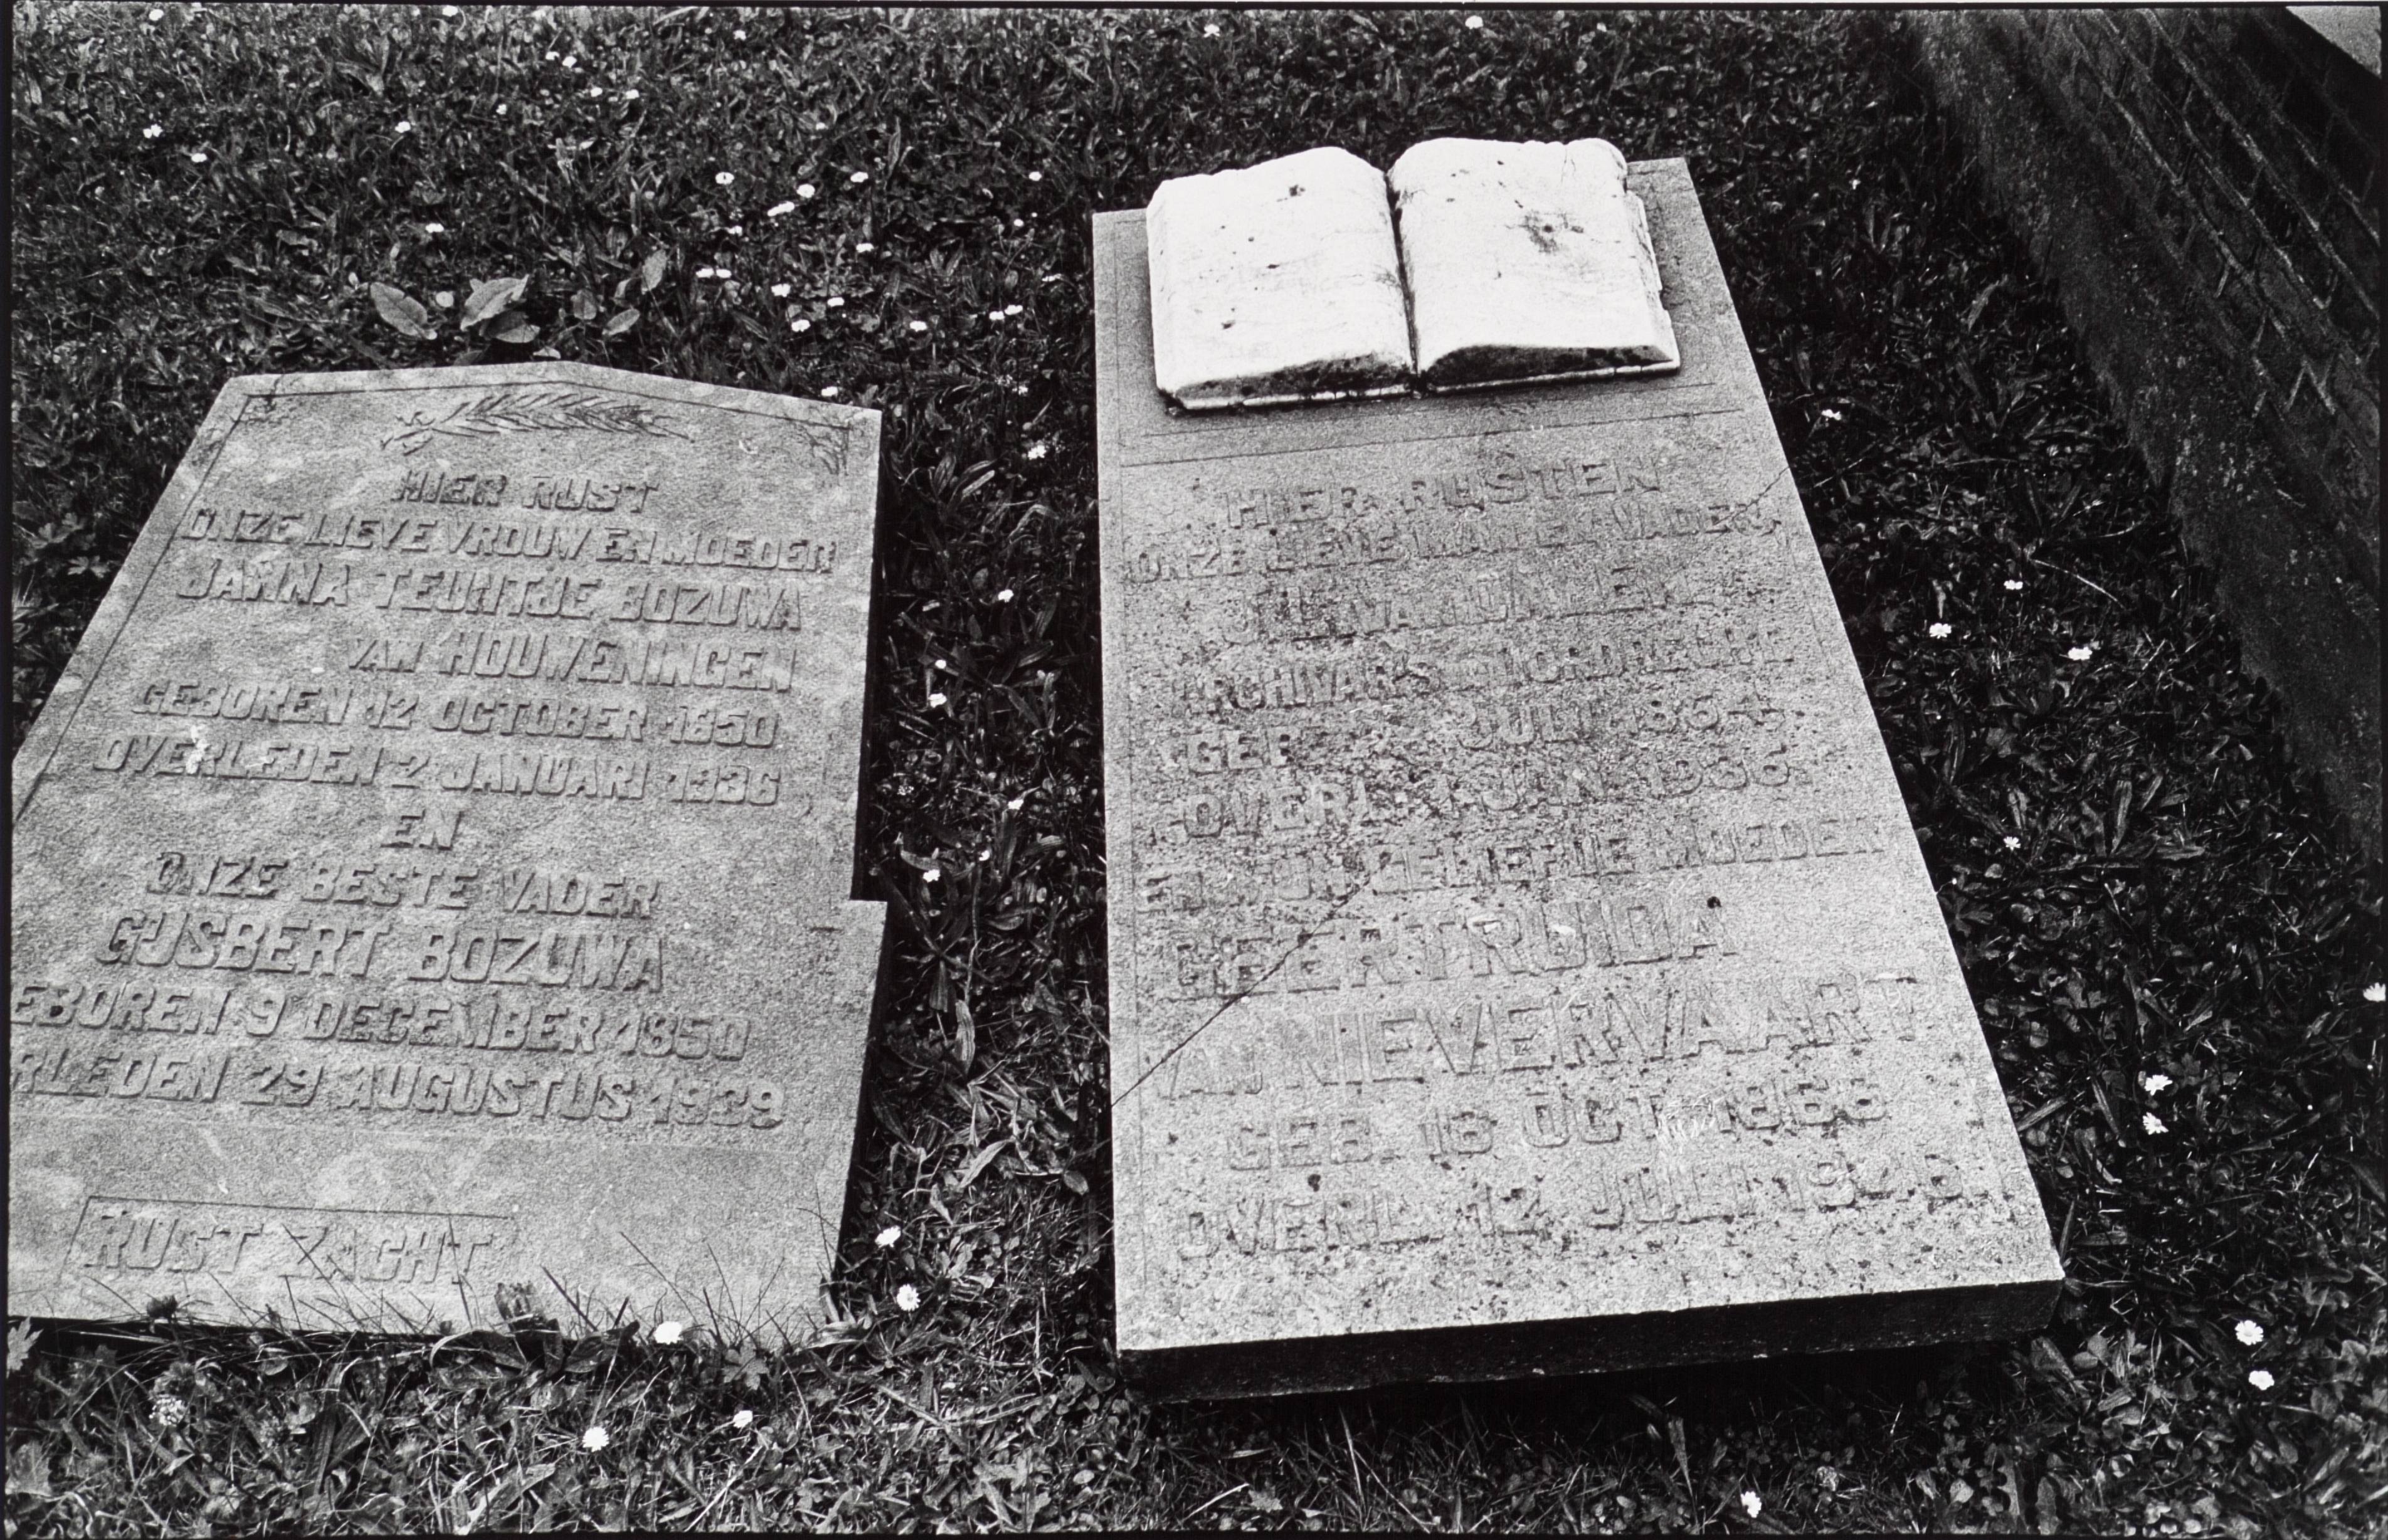 HIER RUST
ONZE LIEVE VROUW EN MOEDER
JANNA TEUNTJE BOZUWA
VAN HOUWENINGEN
GEBOREN 12 OCTOBER 1850
OVERLEDEN 2 JANUARI 1936
EN
ONZE BESTE VADER
GIJSBERT BOZUWA
EBOREN 9 DECEMBER 1850
RLEDEN 29 AUGUSTUS 1939
RUST ZACHT
HIER RUSTEN
ONZE LIEVE MAN EN VADER
ARCHIVARIS DORDRECHT
GEB. JULI 1864
OVERL. 1 JAN. 1936
EN MIJN GELIEFDE MOEDER
GEERTRUIDA
VAN NIEVERVAART
GEB. 18 OCT. 1868
OVERL. 12 JULI